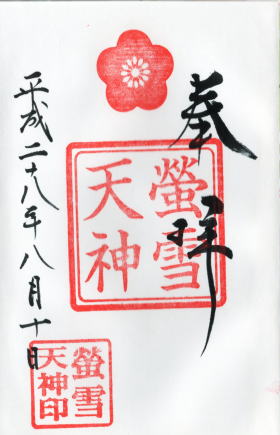 奉拝
螢雪
天神
平成二十八年八月十日
螢雪
天神印